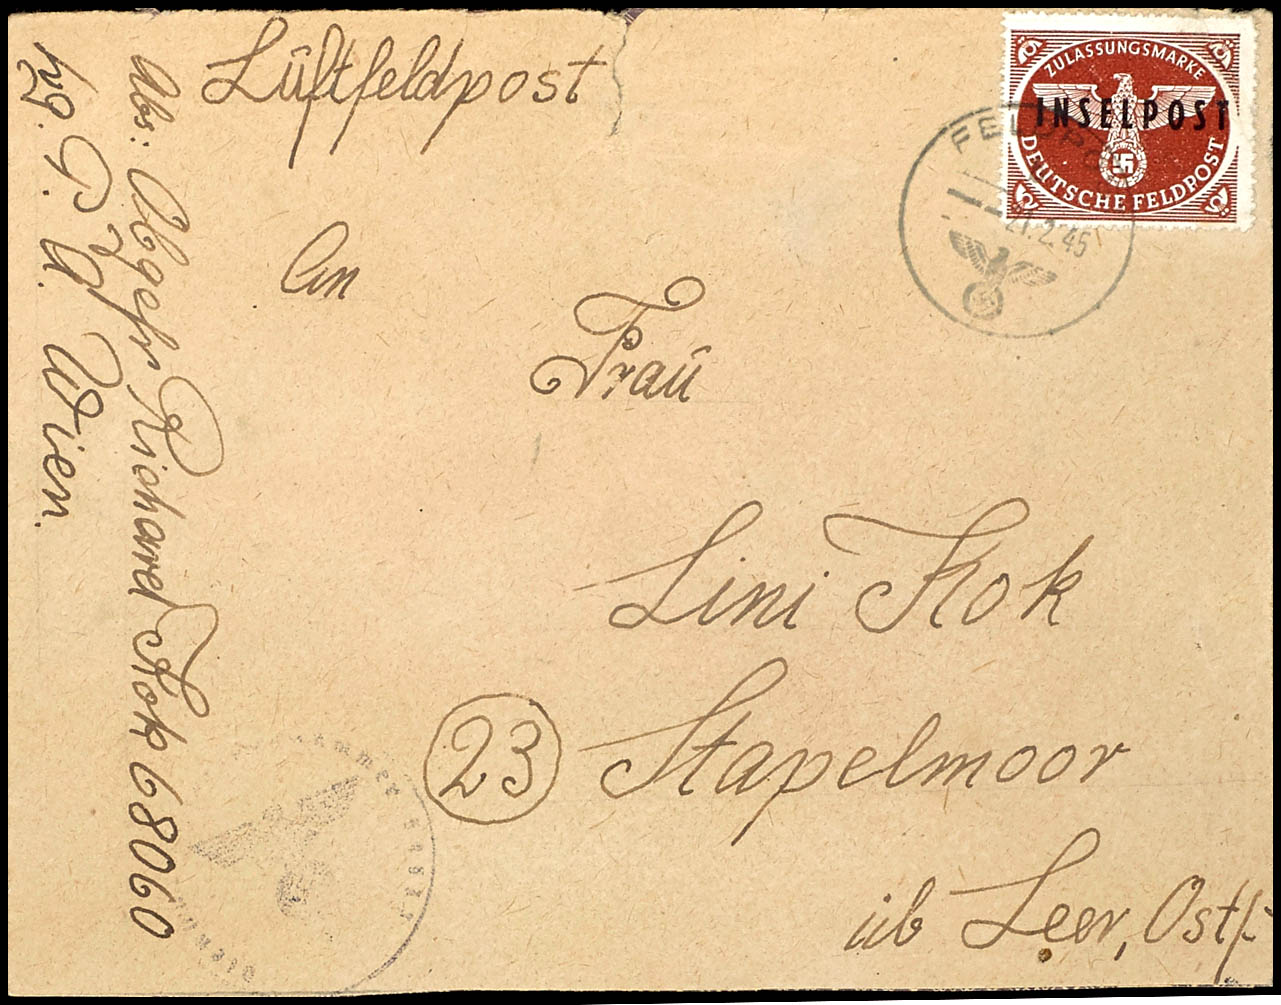 Luftfeldpost
ZULASSUNGSMARKE
INSELPOST
DEUTSCHE FELDPOST
FELDPOST
21.2.45
An
Frau
Lini Kok
23 Stapelmoor
üb Leer, Ostf.
Abs: Obgefr Richard Kok 68060
Lg. P. A. Wien.